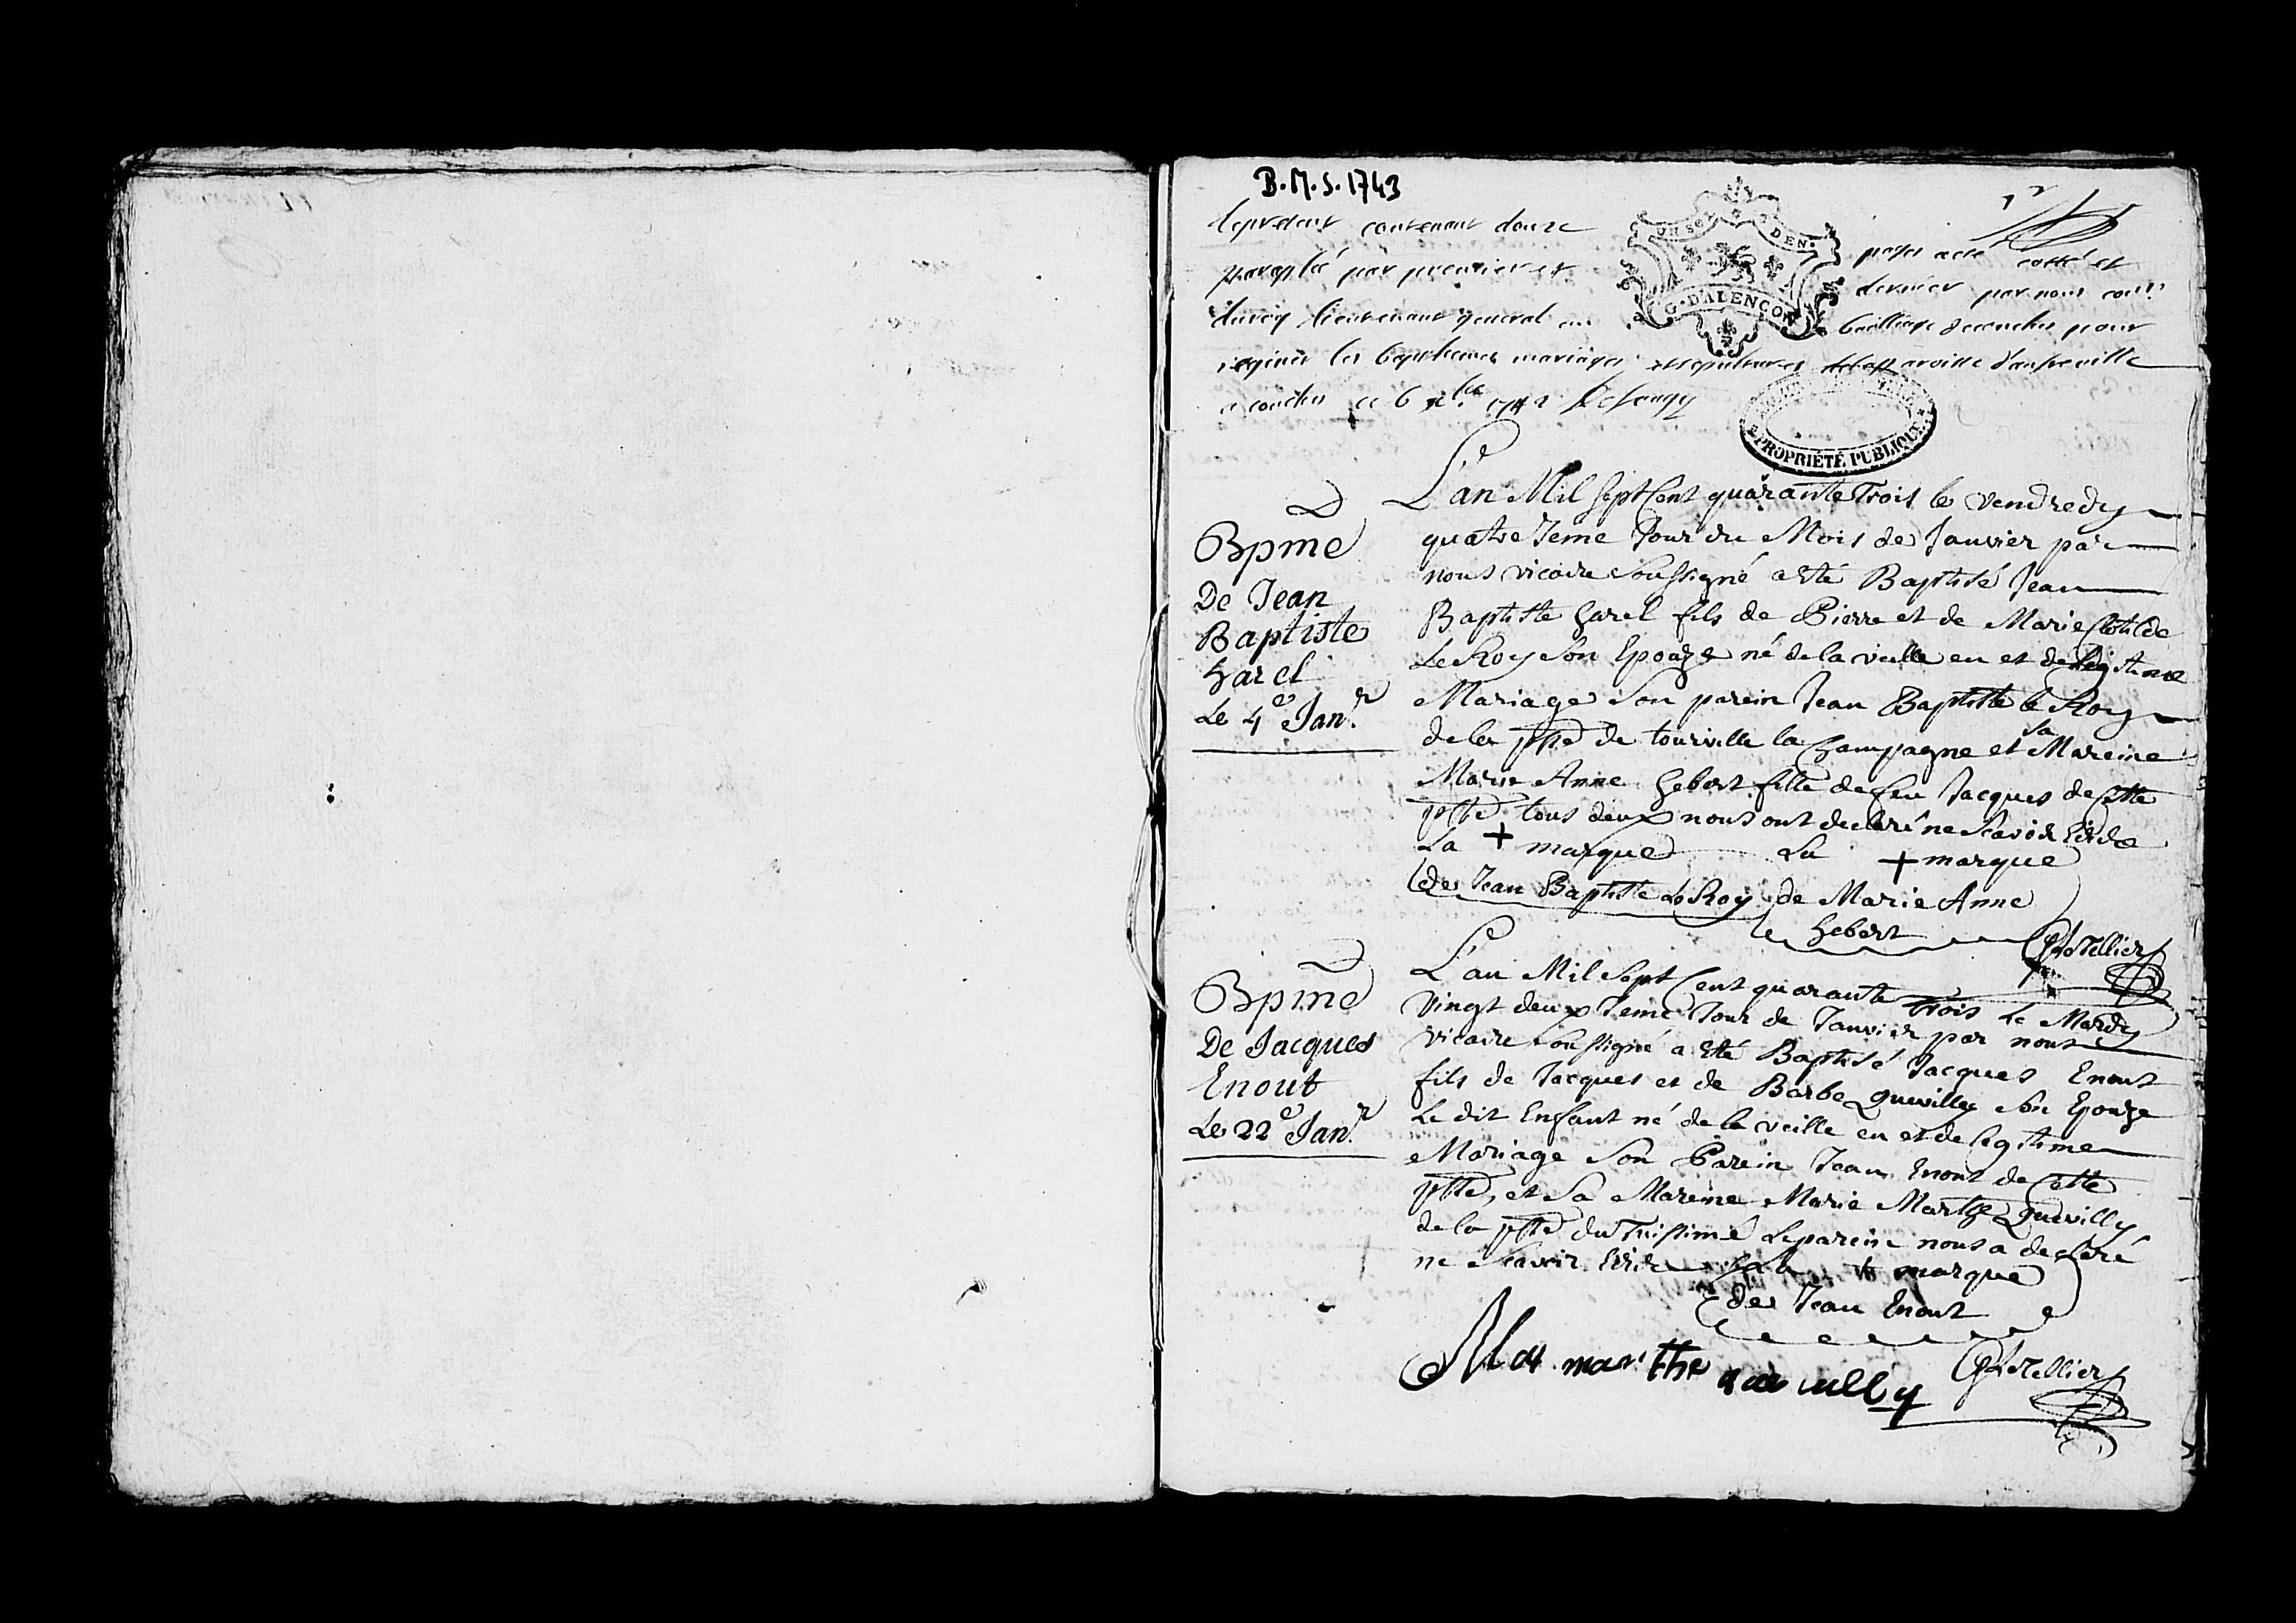 B. M. S. 1743
contenant douze pages a été cotté et
paraphé par premier et dernier par nous cons.
du roy lieutenant general au bailliage de conches pour
les baptesmes mariages et sepultures paroisse
a conches ce 6 1742
UN SOL DEN.
G. D'ALENCON
PROPRIÉTÉ PUBLIQUE
Bpme
De Jean
Baptiste
harel
Le 4e Janr.
L'an Mil Sept Cent quarante Trois le vendredy
quatre Ieme Jour du Mois de Janvier par
nous vicaire soussigné a eté Baptisé Jean
Baptiste harel fils de Pierre et de Marie Clotilde
Le Roy son Epouze né de la veille en et de legitime
Mariage son parein Jean Baptiste le Roy
de la psse de tourville la Champagne et sa Mareine
Marie Anne hebert fille de feu Jacques de Cette
psse tous deux nous ont declaré ne scavoir Ecrire
La + marque La + marque
de Jean Baptiste Le Roy de Marie Anne
hebert
Letellier
Bpme
De Jacques
Enout
Le 22e Janr.
L'an Mil Sept Cent quarante Trois Le Mardy
vingt deux Ieme Jour de Janvier par nous
vicaire soussigné a eté Baptisé Jacques Enout
fils de Jacques et de Barbe Quevilly son Epouze
Le dit Enfant né de la veille en et de legitime
Mariage son Parein Jean Enout de Cette
psse, et sa Mareine Marie Marthe Quevilly
de la psse du Tuissimé Le parein nous a declaré
ne scavoir Ecrire La + marque
de Jean Enout
marthe quevilly
Letellier